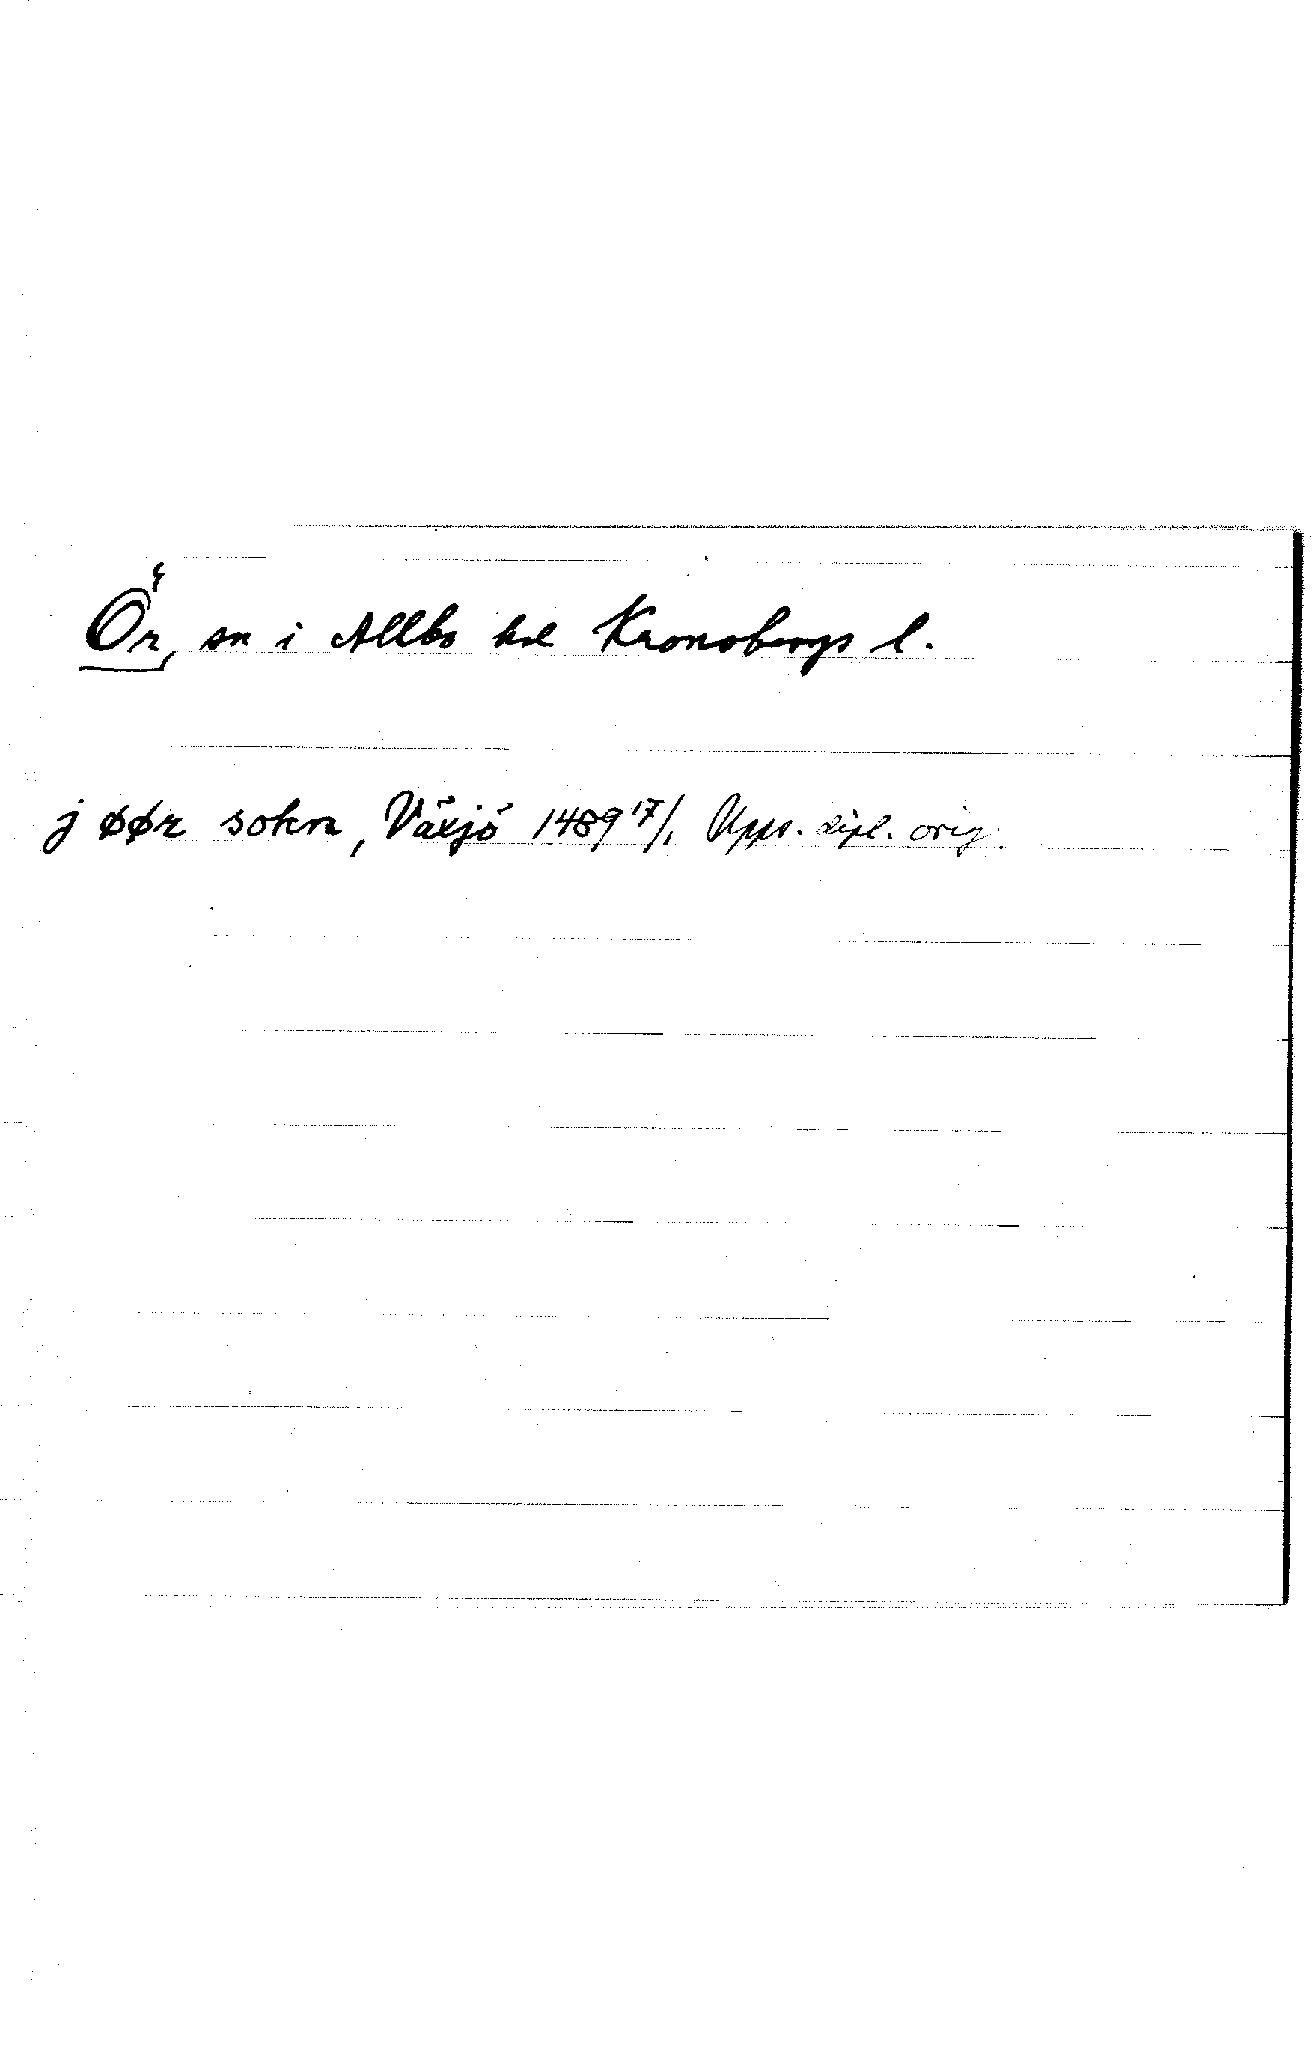 Ör, sn i Allbo hd Kronobergs l.
j øør sokn, Växjö 1489 17/1 Upps. dipl. orig.